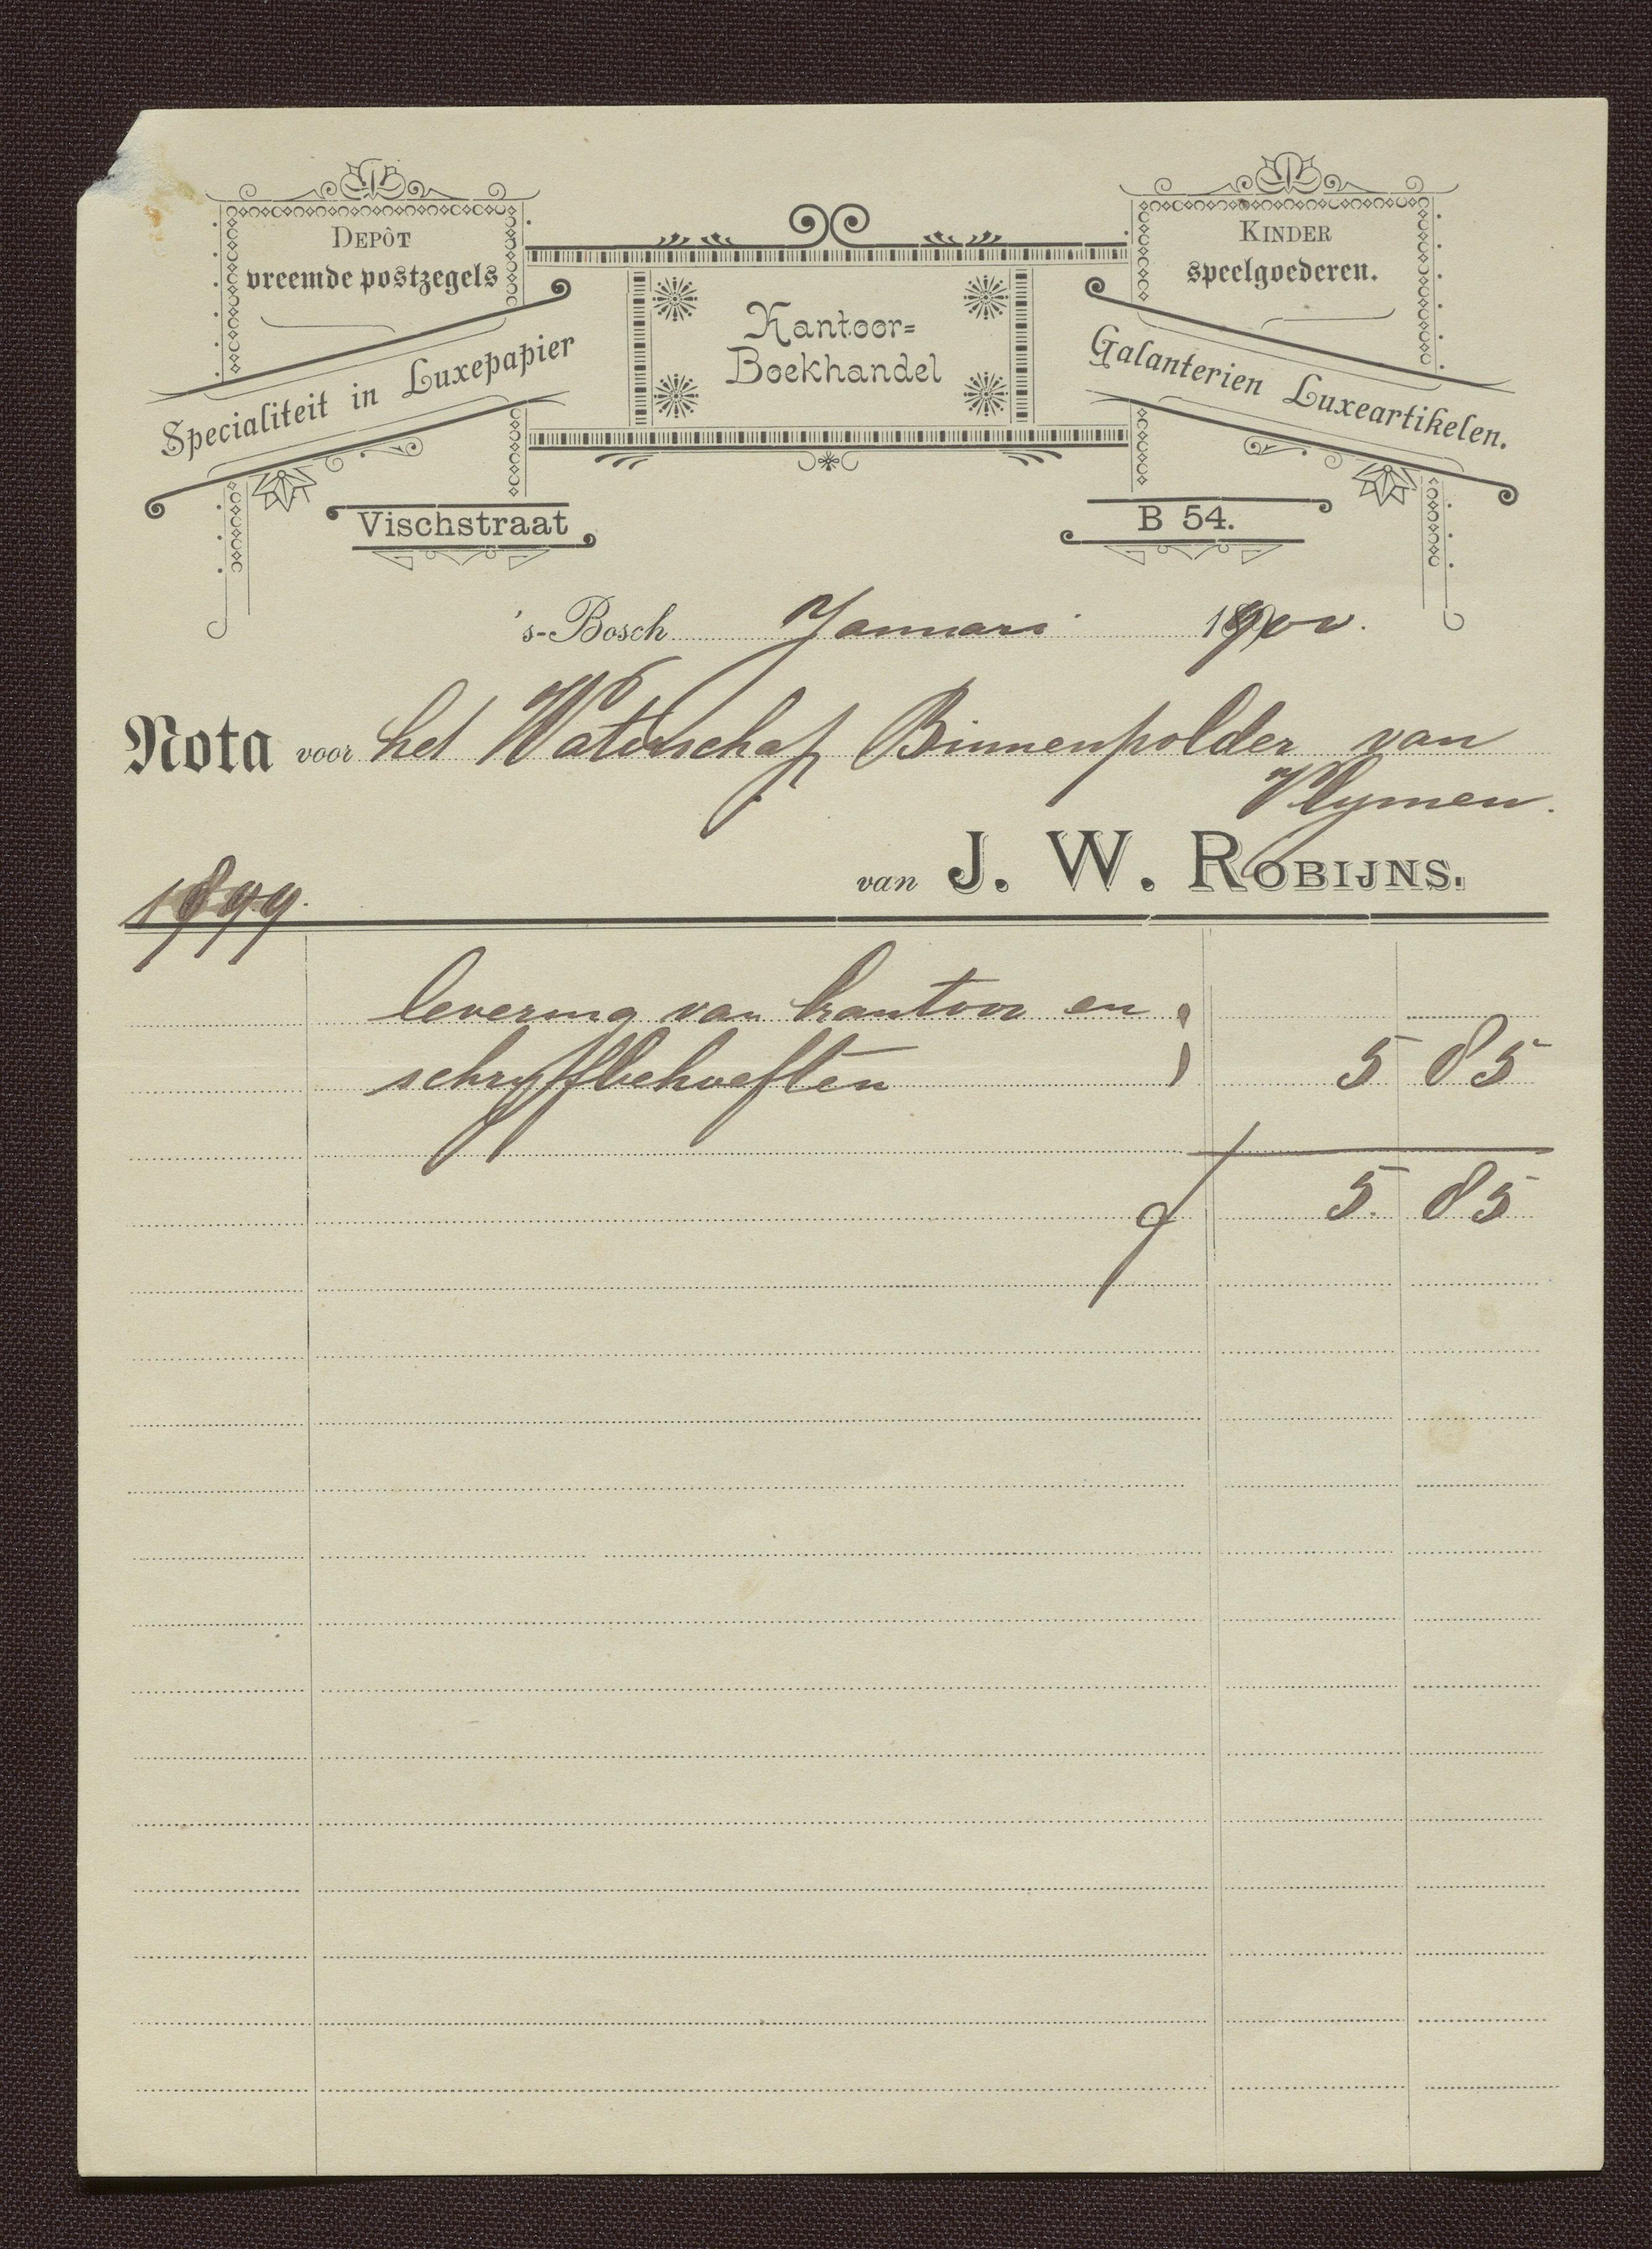 Depôt
vreemde postzegels
Kinder
speelgoederen.
Specialiteit in Luxepapier
Kantoor=
Boekhandel
Galanterien Luxeartikelen.
Vischstraat
B 54.
's-Bosch Januari 1900.
Nota voor het Waterschap Binnenpolder van
Vlymen.
van J. W. Robijns.
1899.
levering van kantoor en
schryfbehoeften 5 85
f 5. 85